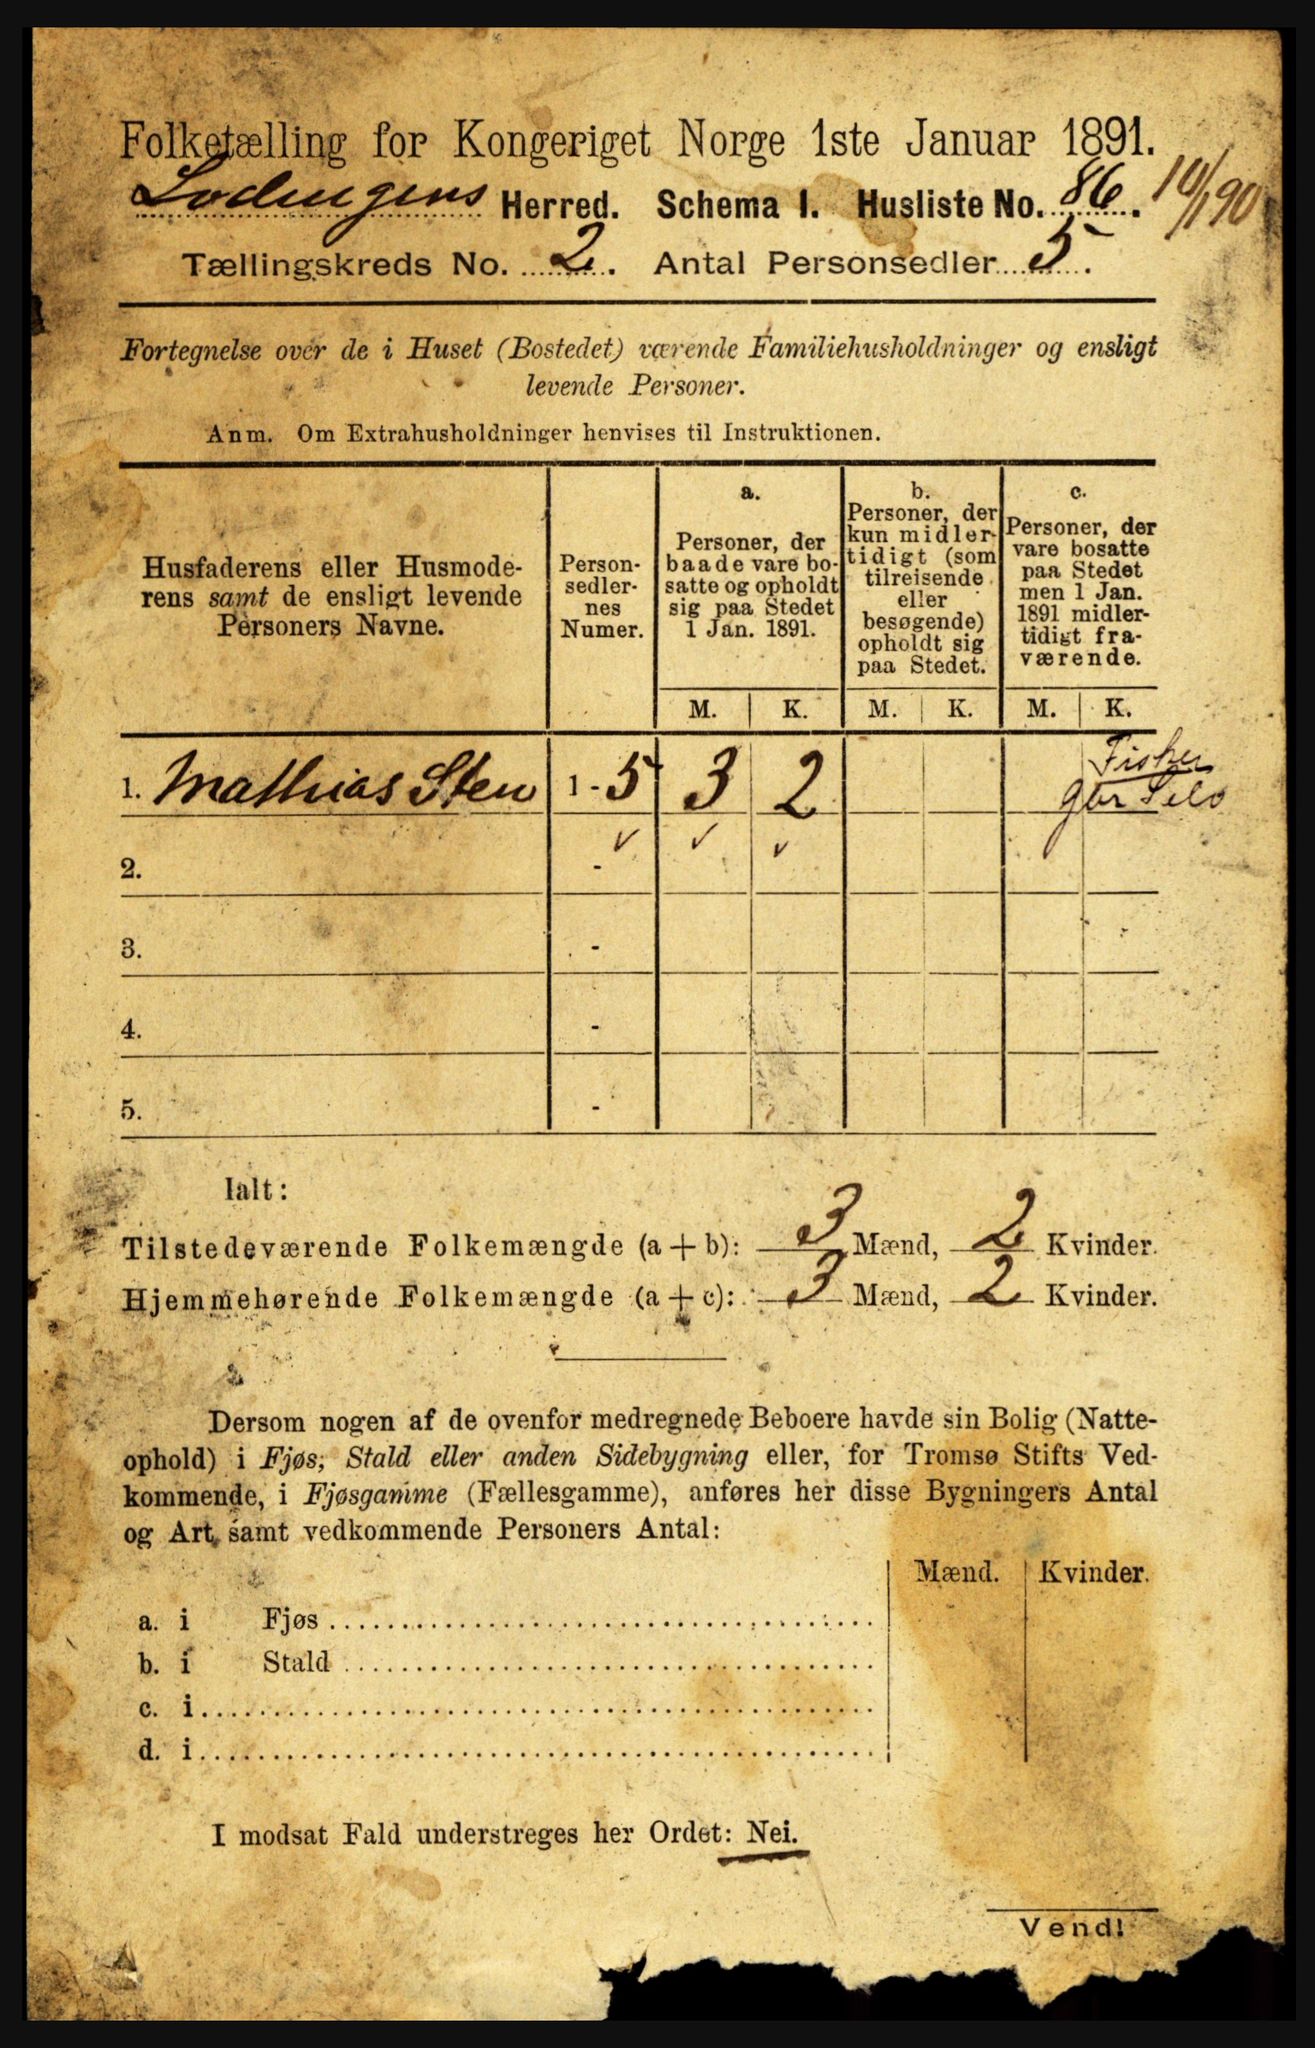 Folketælling for Kongeriget Norge 1ste Januar 1891.
Lodingens Herred. Schema 1. Husliste No. 86.
Tællingskreds No. 2. Antal Personsedler 5.
Fortegnelse over de i Huset (Bostedet) værende Familiehusholdninger og ensligt
levende Personer.
Anm. Om Extrahusholdninger henvises til Instruktionen.
Husfaderens eller Husmode-
rens samt de ensligt levende
Personers Navne.
Person-
sedler-
nes
Numer.
a.
Personer, der
baade vare bo-
satte og opholdt
sig paa Stedet
1 Jan. 1891.
b.
Personer, der
kun midler-
tidigt (som
tilreisende
eller
besøgende)
opholdt sig
paa Stedet.
c.
Personer, der
vare bosatte
paa Stedet
men 1 Jan.
1891 midler-
tidigt fra-
værende.
M. K. M. K. M. K.
Fisker
1. Mathias Sten 1 - 5 3 2
2. - ✓ ✓ ✓
3. -
4. -
5. -
Ialt:
Tilstedeværende Folkemængde (a + b): 3 Mænd, 2 Kvinder.
Hjemmehørende Folkemængde (a + c): 3 Mænd, 2 Kvinder.
Dersom nogen af de ovenfor medregnede Beboere havde sin Bolig (Natte-
ophold) i Fjøs, Stald eller anden Sidebygning eller, for Tromsø Stifts Ved-
kommende, i Fjøsgamme (Fællesgamme), anføres her disse Bygningers Antal
og Art samt vedkommende Personers Antal:
Mænd. Kvinder.
a. i Fjøs
b. i Stald
c. i
d. i
I modsat Fald understreges her Ordet: Nei.
Vend!